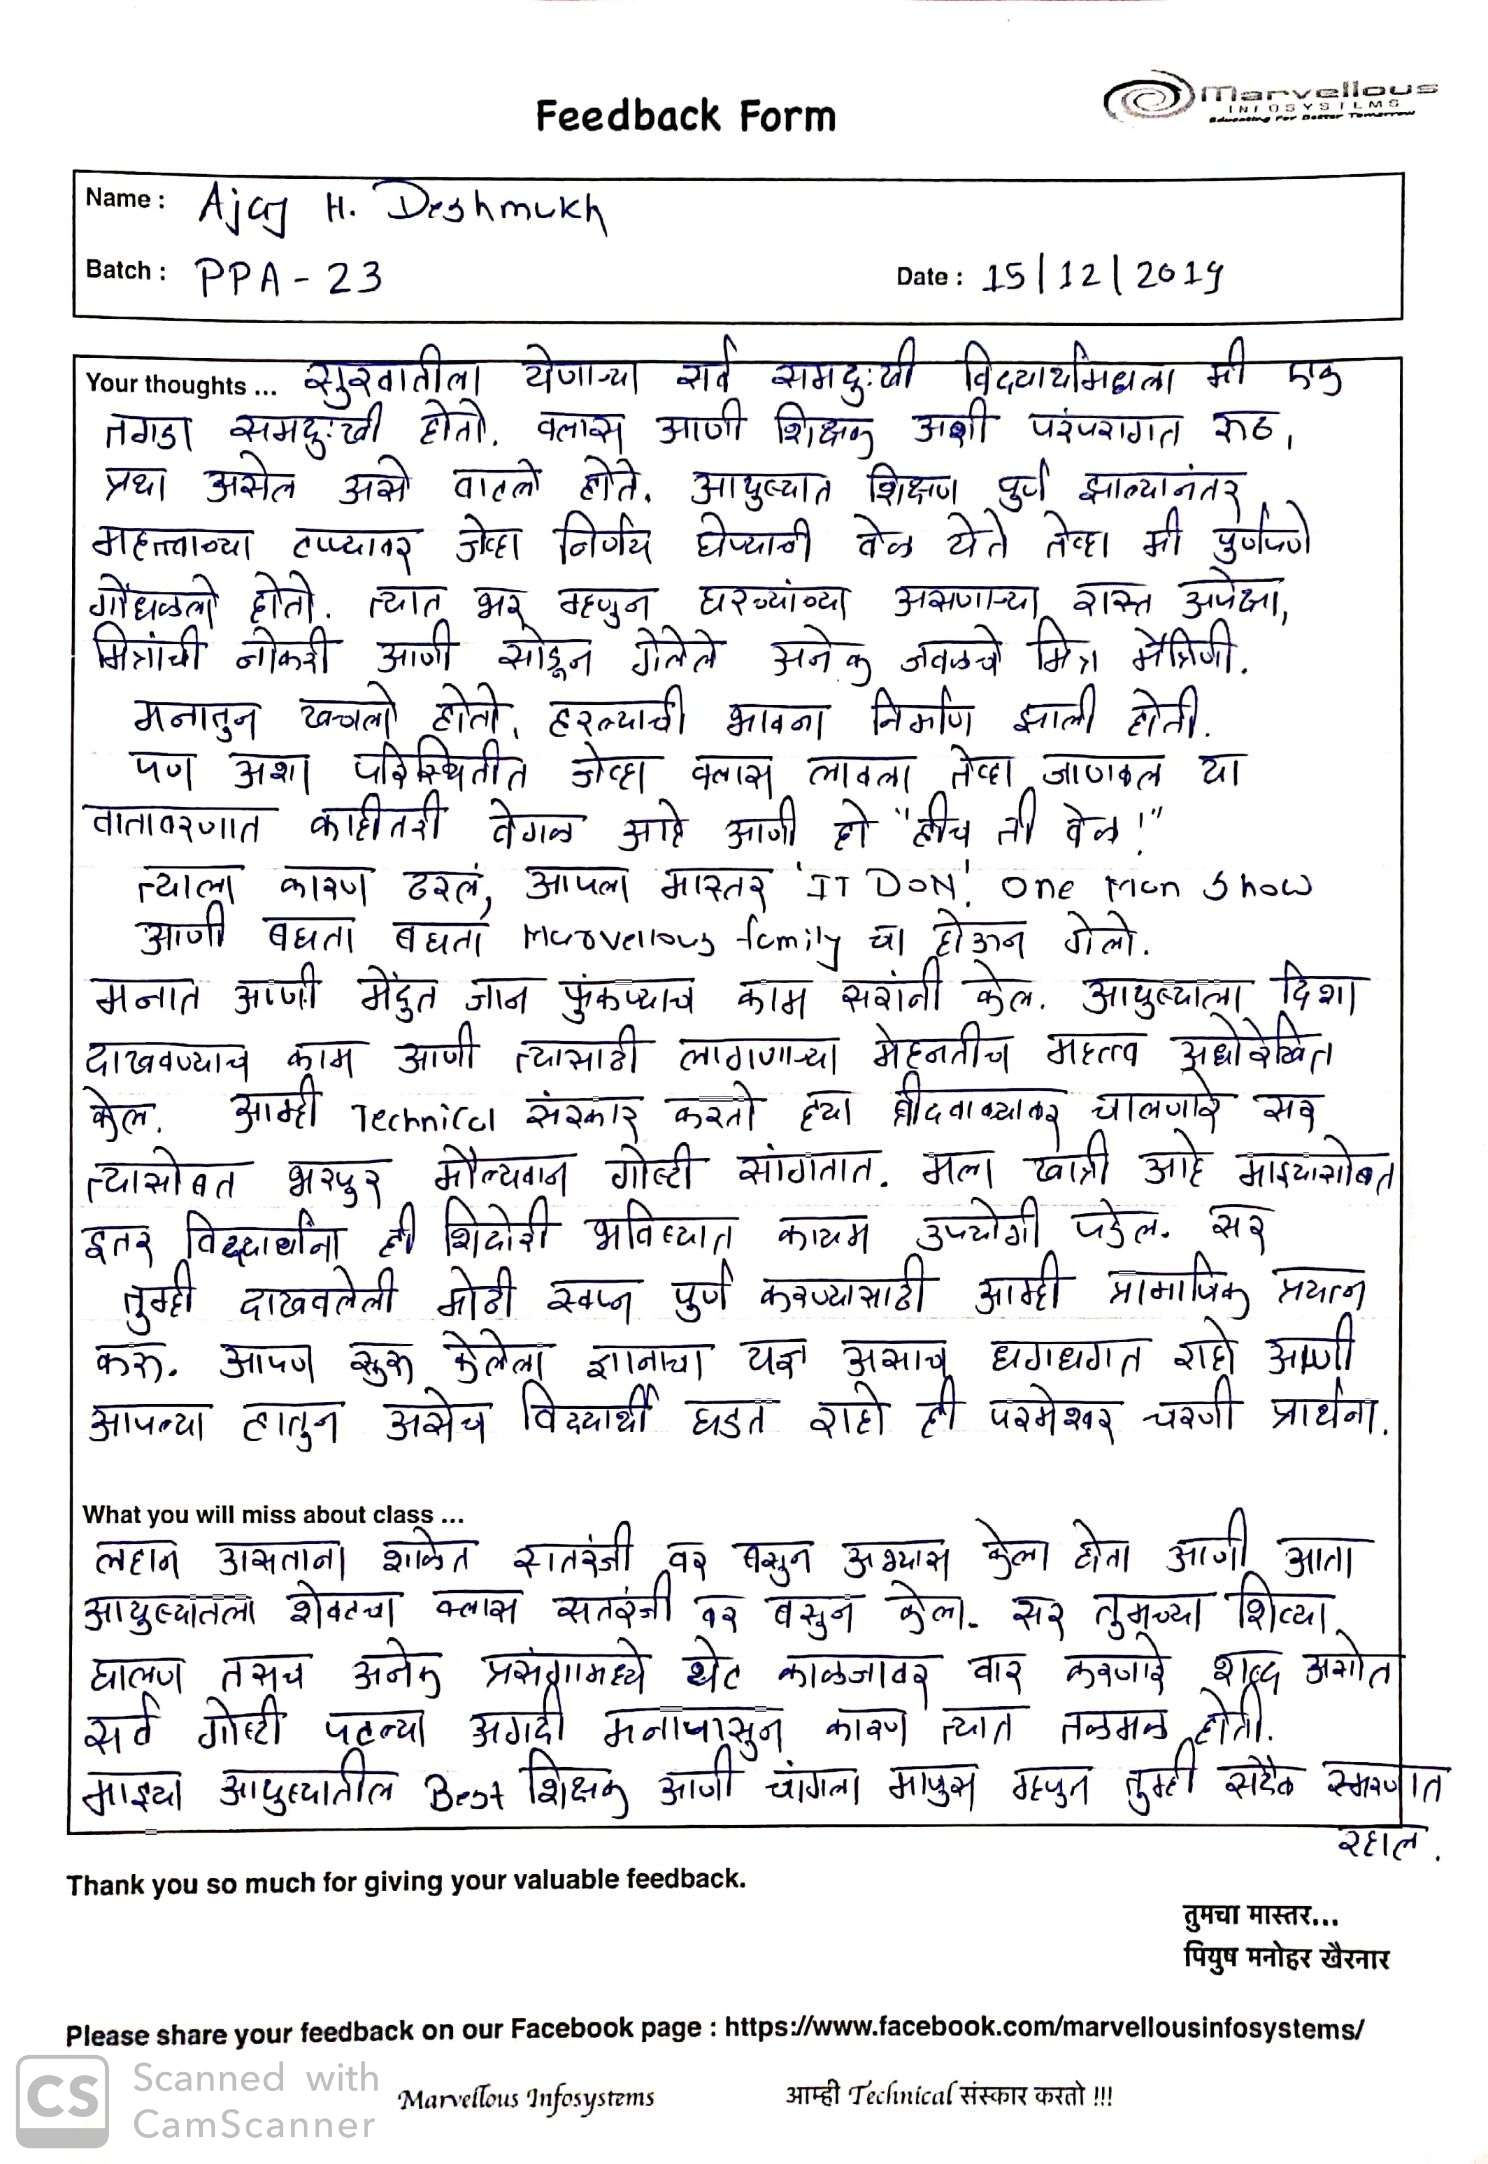 Feedback Form
Marvellous
INFOSYSTEMS
Educating For Better Tomorrow
Name : Ajay H. Deshmukh
Batch : PPA - 23
Date : 15/12/2019
Your thoughts ... सुरवातीला येणाऱ्या सर्व समदुःखी विद्यार्थामधला मी एक
तगडा समदुःखी होतो. क्लास आणी शिक्षक अशी परंपरागत रूढ,
प्रथा असेल असे वाटले होते. आयुष्यात शिक्षण पुर्ण झाल्यानंतर
महत्त्वाच्या टप्प्यावर जेव्हा निर्णय घेण्याची वेळ येते तेव्हा मी पुर्णपणे
गोंधळलो होतो. त्यात भर म्हणुन घरच्यांच्या असणाऱ्या रास्त अपेक्षा,
मित्रांची नोकरी आणी सोडून गेलेले अनेक जवळचे मित्र मैत्रिणी.
मनातुन खचलो होतो, हरल्याची भावना निर्माण झाली होती.
पण अशा परिस्थितीत जेव्हा क्लास लावला तेव्हा जाणवल या
वातावरणात काहीतरी वेगळ आहे आणी हो "हीच ती वेळ!"
त्याला कारण ठरलं, आपला मास्तर 'IT DON'. One Man Show
आणी बघता बघता Marvellous family चा होऊन गेलो.
मनात आणी मेंदुत जान फुंकण्याच काम सरांनी केल. आयुष्याला दिशा
दाखवण्याच काम आणी त्यासाठी लागणाऱ्या मेहनतीच महत्त्व अधोरेखित
केल. आम्ही Technical संस्कार करतो ह्या ब्रीदवाक्यावर चालणारे सर
त्यासोबत भरपुर मौल्यवान गोष्टी सांगतात. मला खात्री आहे माझ्यासोबत
इतर विद्यार्थांना ही शिदोरी भविष्यात कायम उपयोगी पडेल. सर
तुम्ही दाखवलेली मोठी स्वप्न पुर्ण करण्यासाठी आम्ही प्रामाणिक प्रयत्न
करू. आपण सुरू केलेला ज्ञानाचा यज्ञ असाच धगधगत राहो आणी
आपल्या हातुन असेच विद्यार्थी घडत राहो ही परमेश्वर चरणी प्रार्थना.
What you will miss about class ...
लहान असताना शाळेत सतरंजी वर बसुन अभ्यास केला होता आणी आता
आयुष्यातला शेवटचा क्लास सतरंजी वर बसुन केला. सर तुमच्या शिव्या
घालण तसच अनेक प्रसंगामध्ये थेट काळजावर वार करणारे शब्द असोत
सर्व गोष्टी पटल्या अगदी मनापासुन कारण त्यात तळमळ होती.
माझ्या आयुष्यातील Best शिक्षक आणी चांगला माणुस म्हणुन तुम्ही सदैव स्मरणात
रहाल.
Thank you so much for giving your valuable feedback.
तुमचा मास्तर...
पियुष मनोहर खैरनार
Please share your feedback on our Facebook page : https://www.facebook.com/marvellousinfosystems/
Marvellous Infosystems
आम्ही Technical संस्कार करतो !!!
CS Scanned with
CamScanner